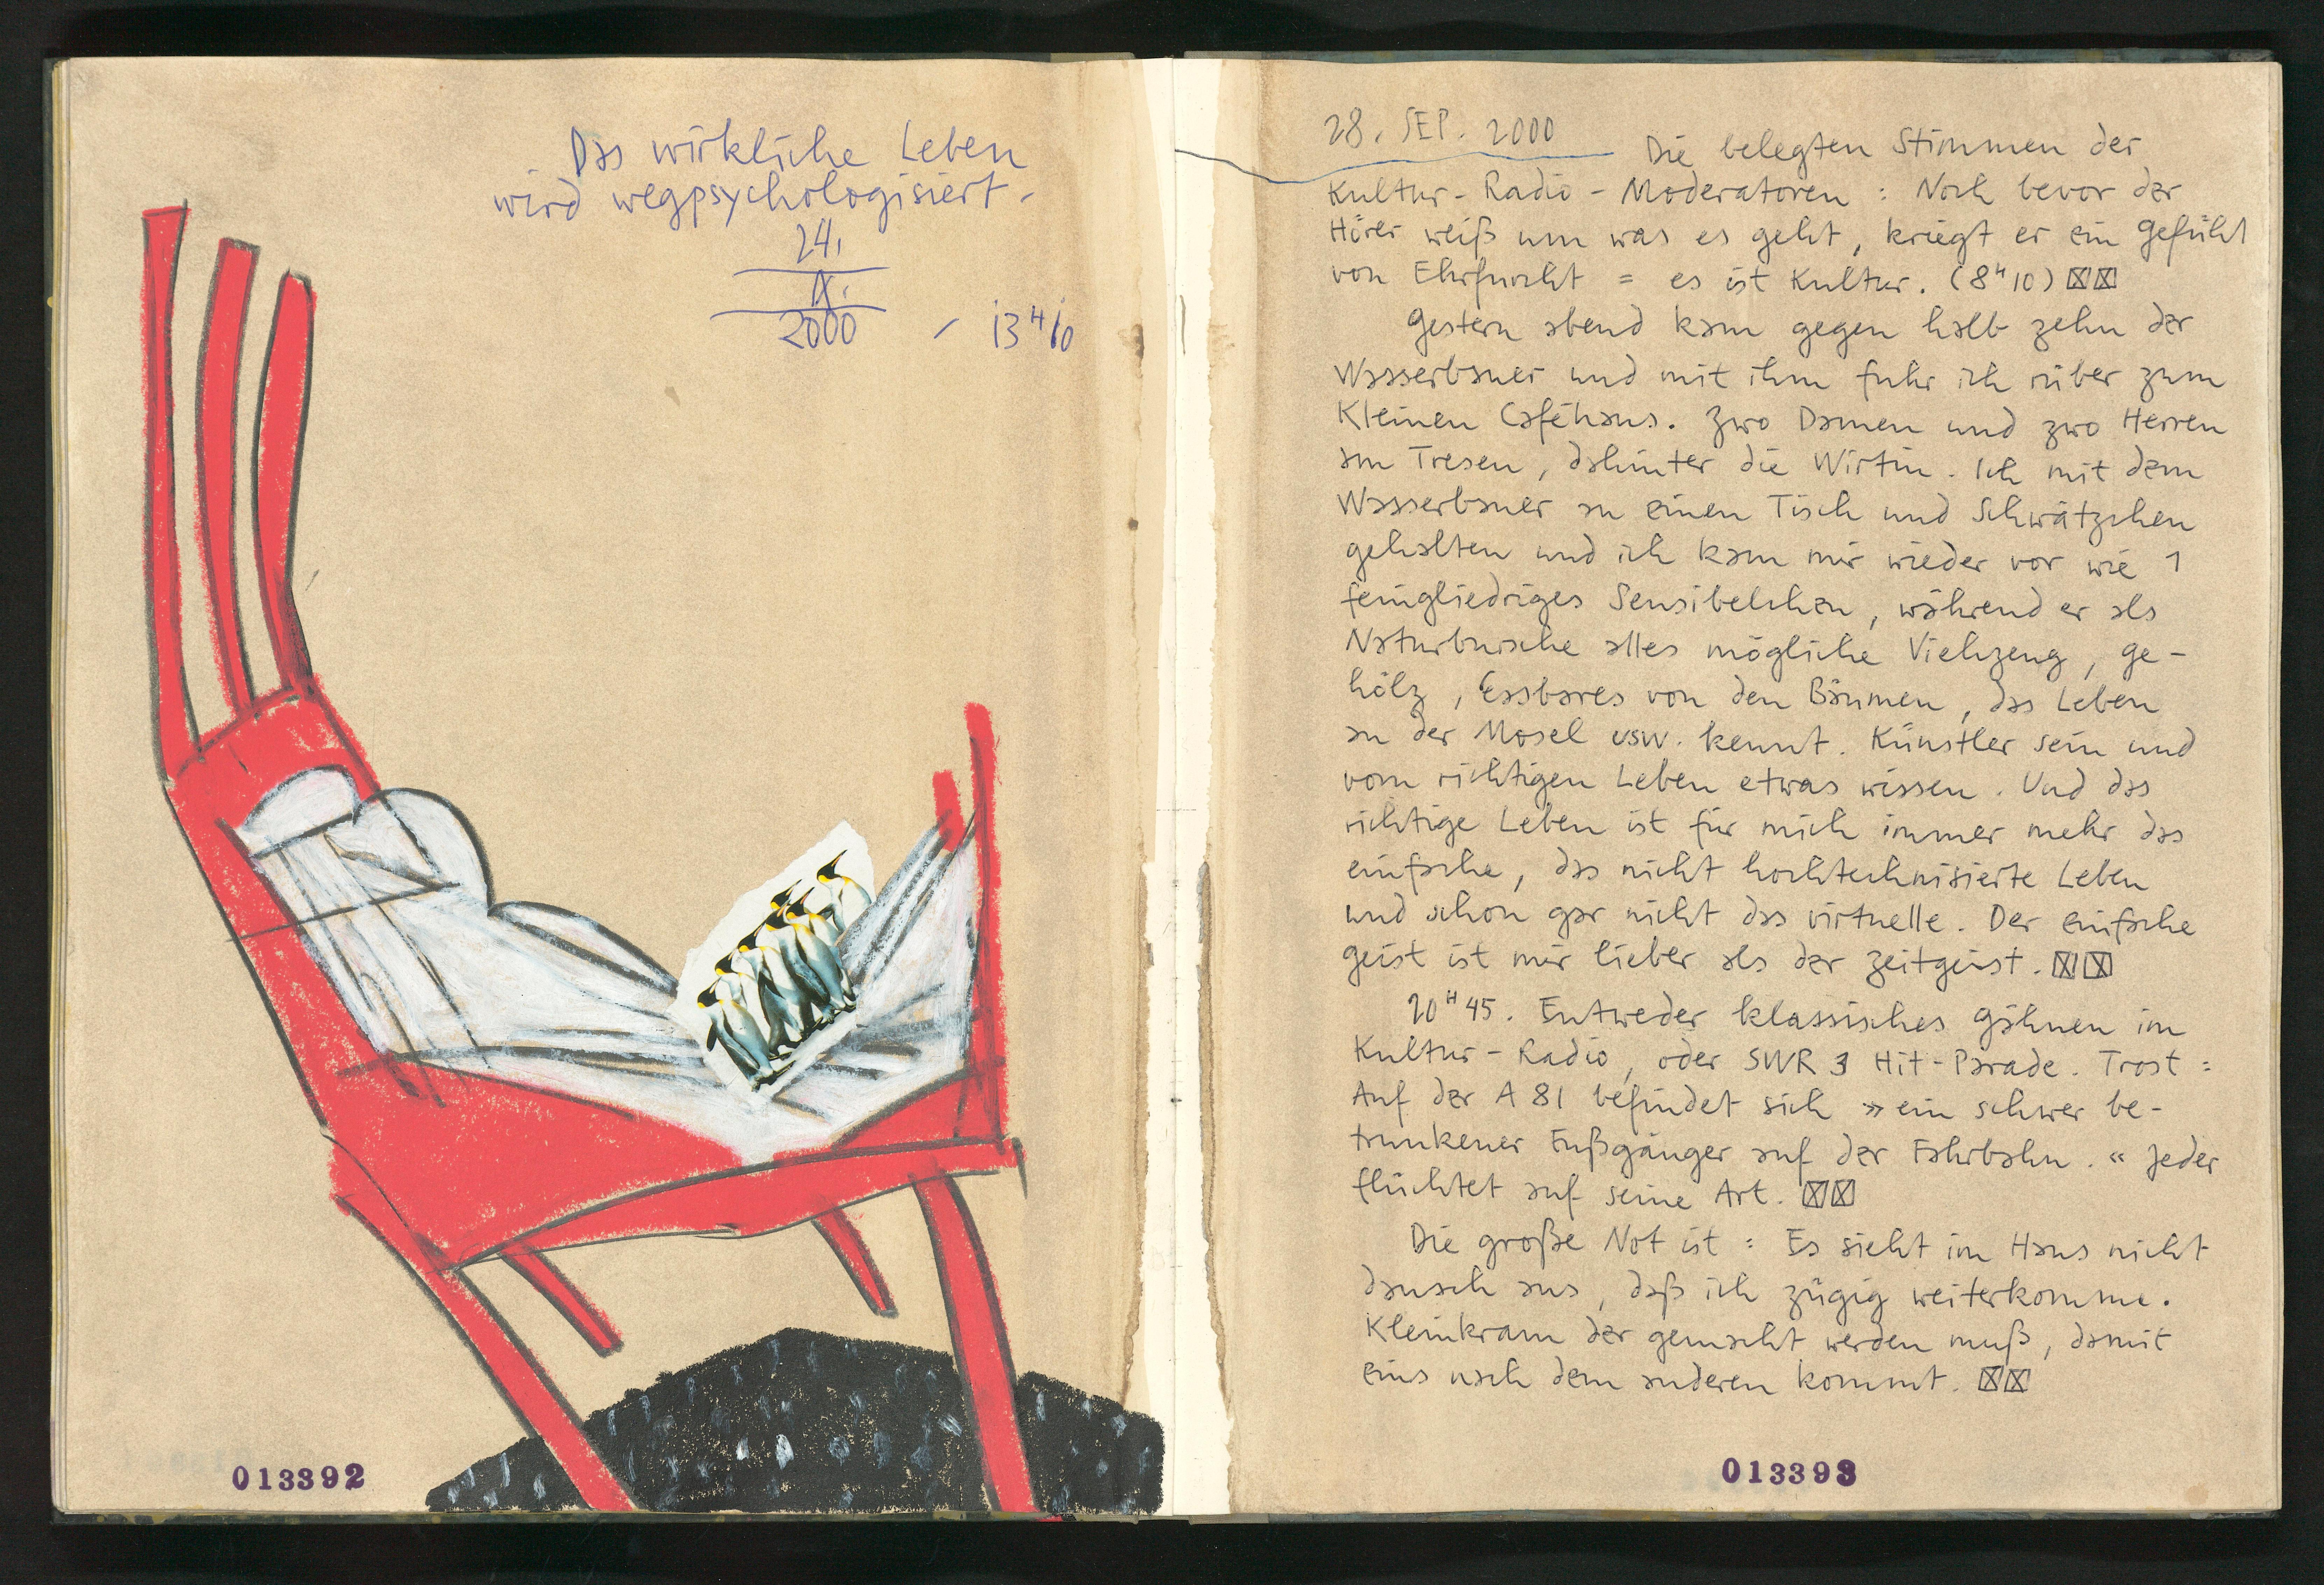 Das wirkliche Leben
wird wegpsychologisiert.
24.
IX.
2000 – 13ᴴ10
013392
28. SEP. 2000 Die belegten Stimmen der
Kultur-Radio-Moderatoren: Noch bevor der
Hörer weiß um was es geht, kriegt er ein Gefühl
von Ehrfurcht = es ist Kultur. (8ᴴ10) ☒☒
Gestern abend kam gegen halb zehn der
Wasserbauer und mit ihm fuhr ich rüber zum
Kleinen Caféhaus. Zwo Damen und zwo Herren
am Tresen, dahinter die Wirtin. Ich mit dem
Wasserbauer an einen Tisch und Schwätzchen
gehalten und ich kam mir wieder vor wie 1
feingliedriges Sensibelchen, während er als
Naturbursche alles mögliche Viehzeug, Ge-
hölz, Essbares von den Bäumen, das Leben
an der Mosel usw. kennt. Künstler sein und
vom richtigen Leben etwas wissen. Und das
richtige Leben ist für mich immer mehr das
einfache, das nicht hochtechnisierte Leben
und schon gar nicht das virtuelle. Der einfache
Geist ist mir lieber als der Zeitgeist. ☒☒
20ᴴ45. Entweder klassisches Gähnen im
Kultur-Radio, oder SWR 3 Hit-Parade. Trost:
Auf der A 81 befindet sich »ein schwer be-
trunkener Fußgänger auf der Fahrbahn.« Jeder
flüchtet auf seine Art. ☒☒
Die große Not ist: Es sieht im Haus nicht
danach aus, daß ich zügig weiterkomme.
Kleinkram der gemacht werden muß, damit
eins nach dem anderen kommt. ☒☒
013393